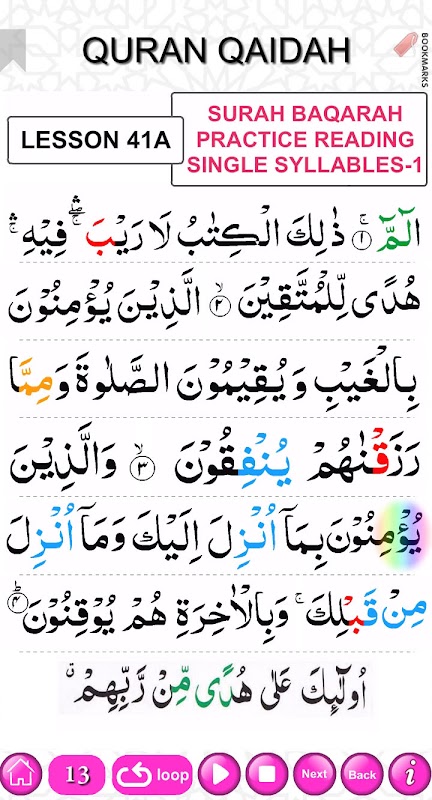 QURAN QAIDAH
BOOKMARKS
LESSON 41A
SURAH BAQARAH
PRACTICE READING
SINGLE SYLLABLES-1
الٓمّٓ ۚ﴿۱﴾ ذٰلِكَ الْكِتٰبُ لَا رَيْبَ ۛۖ فِيْهِ ۛۚ
هُدًى لِّلْمُتَّقِيْنَ ۙ﴿۲﴾ الَّذِيْنَ يُؤْمِنُوْنَ
بِالْغَيْبِ وَ يُقِيْمُوْنَ الصَّلٰوةَ وَمِمَّا
رَزَقْنٰهُمْ يُنْفِقُوْنَ ۙ﴿۳﴾ وَالَّذِيْنَ
يُؤْمِنُوْنَ بِمَآ اُنْزِلَ اِلَيْكَ وَمَآ اُنْزِلَ
مِنْ قَبْلِكَ ۚ وَبِالْاٰخِرَةِ هُمْ يُوْقِنُوْنَ ؕ﴿۴﴾
اُولٰٓئِكَ عَلٰى هُدًى مِّنْ رَّبِّهِمْ ۗ
13 loop Next Back i